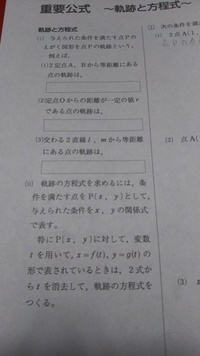 重要公式 ～軌跡と方程式～
軌跡と方程式
(i) 与えられた条件を満たす点Pの
えがく図形を点Pの軌跡という。
例えば，
(1) 2定点A，Bから等距離にある点の軌跡は，
(2)定点Oからの距離が一定の値r
である点の軌跡は，
(3)交わる2直線l，mから等距離
にある点の軌跡は，
(ii) 軌跡の方程式を求めるには，条
件を満たす点をP(x，y)として，
与えられた条件をx，yの関係式
で表す。
特にP(x，y)に対して，変数
tを用いて，x=f(t)，y=g(t)の
形で表されているときは，2式か
らtを消去して，軌跡の方程式を
つくる。
次の条件を満
(1) 2点A(
(2) 点A(
(3)